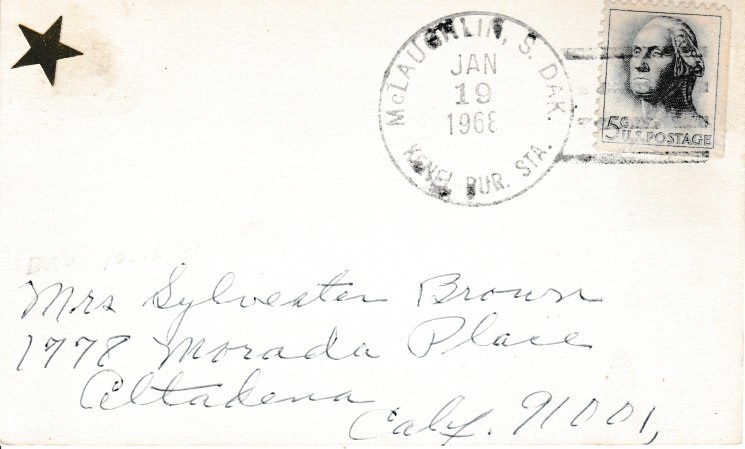 McLAUGHLIN, S. DAK.
JAN
19
1968
KENEL RUR. STA.
5c
U.S. POSTAGE
Mrs Sylvester Brown
1778 Morada Place
Altadena
Calif. 91001,